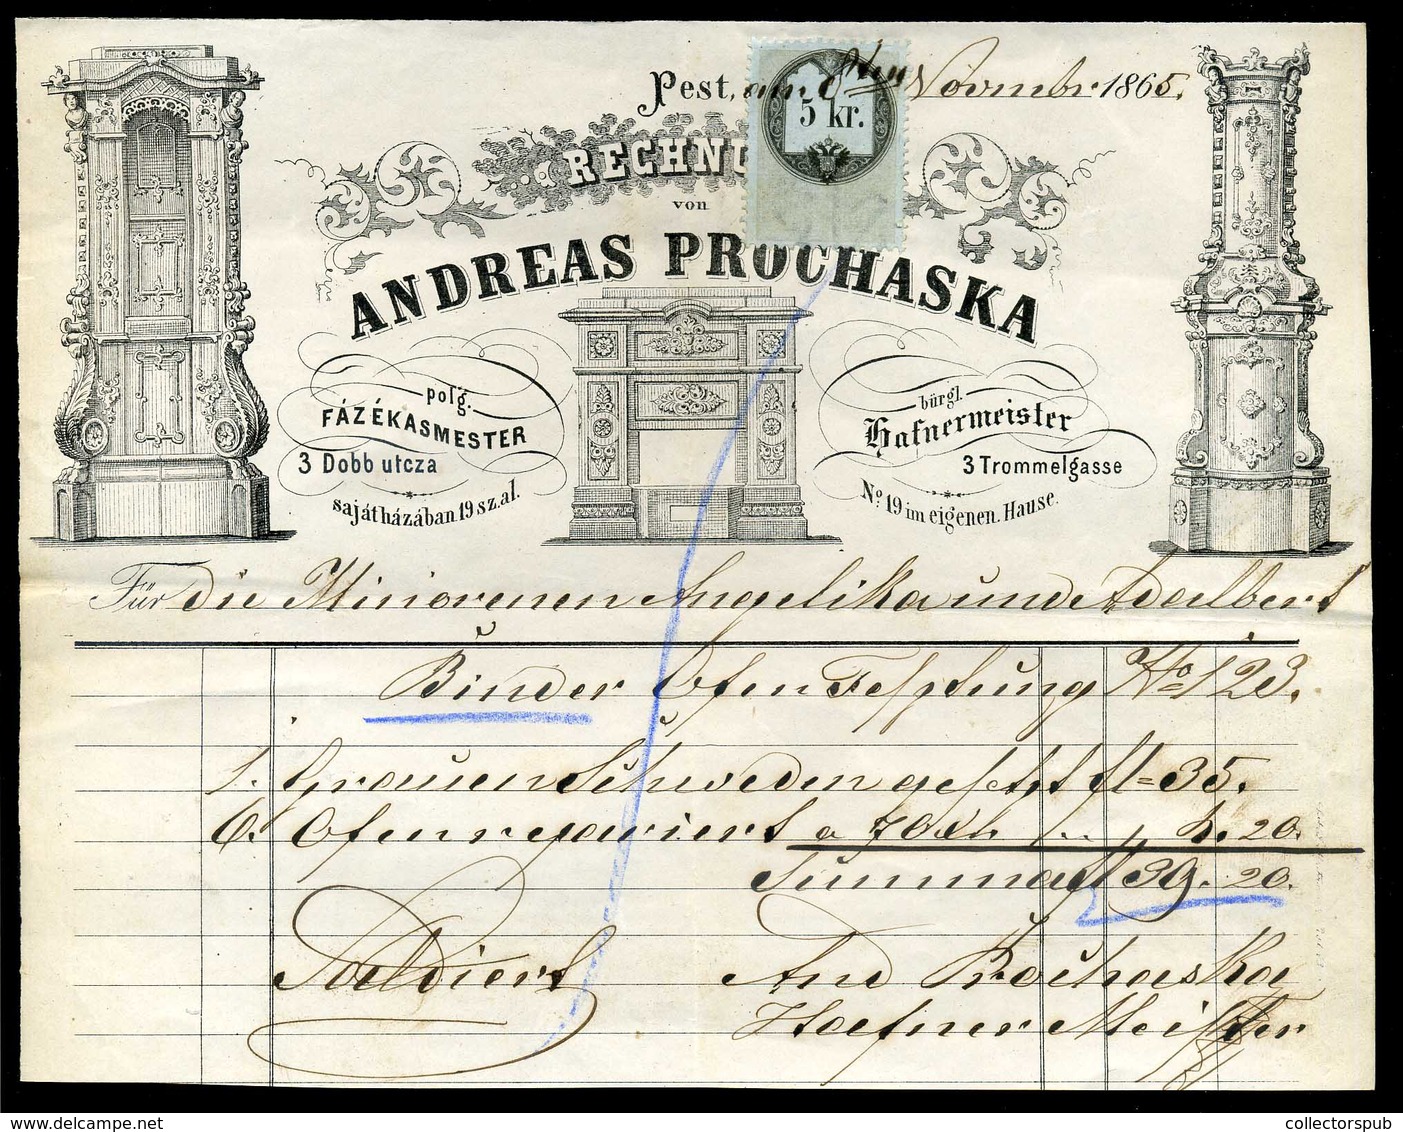 Pest, am 8ten Novembr 1865.
5 kr.
RECHNU
von
ANDREAS PROCHASKA
polg.
FÁZÉKASMESTER
3 Dobb utcza
saját házában 19 sz. al.
bürgl.
Hafnermeister
3 Trommelgasse
No. 19 im eigenen Hause.
Für die Minorenen Angelika und Adalbert
Binder Ofen No 123.
1. Grauen Schweden gesetzt fl = 35.
6. Ofen repariert a 70 4. 20.
Summa fl 39. 20.
Saldiert And Prochaska
Hafner Meister
collectorspub